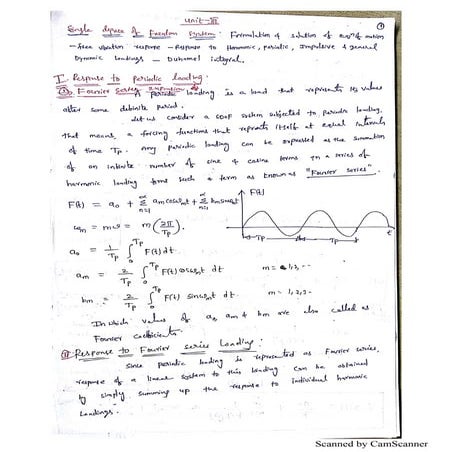 Unit-III
①
Single degree of freedom system: Formulation & solution of eqn of motion
- free vibration response - Response to Harmonic, periodic, Impulsive & general
Dynamic loadings - Duhamel integral.
I. Response to periodic loading:
① Fourier series expansion: A periodic loading is a load that represents its values
after some definite period.
let us consider a SDOF system subjected to periodic loading,
that means, a forcing functions that repeats itself at equal intervals
of time Tp. Any periodic loading can be expressed as the summation
of an infinite number of sine & cosine terms in a series of
harmonic loading terms such a term as known as "Fourier series".
F(t) = a₀ + Σ am cosωmt + Σ bm sinωmt
ωm = mω = m(2π/Tp)
F(t)
Tp
Tp
t
a₀ = 1/Tp ∫₀^Tp F(t) dt
am = 2/Tp ∫₀^Tp F(t) cosωmt dt m = 1,2,3-
bm = 2/Tp ∫₀^Tp F(t) sinωmt dt m = 1,2,3-
In which values of a₀ am & bm are also called as
Fourier coefficients.
② Response to Fourier series Loading:
Since periodic loading is represented as Fourier series,
response of a linear system to this loading can be obtained
by simply summing up the response to individual harmonic
Loadings.
Scanned by CamScanner